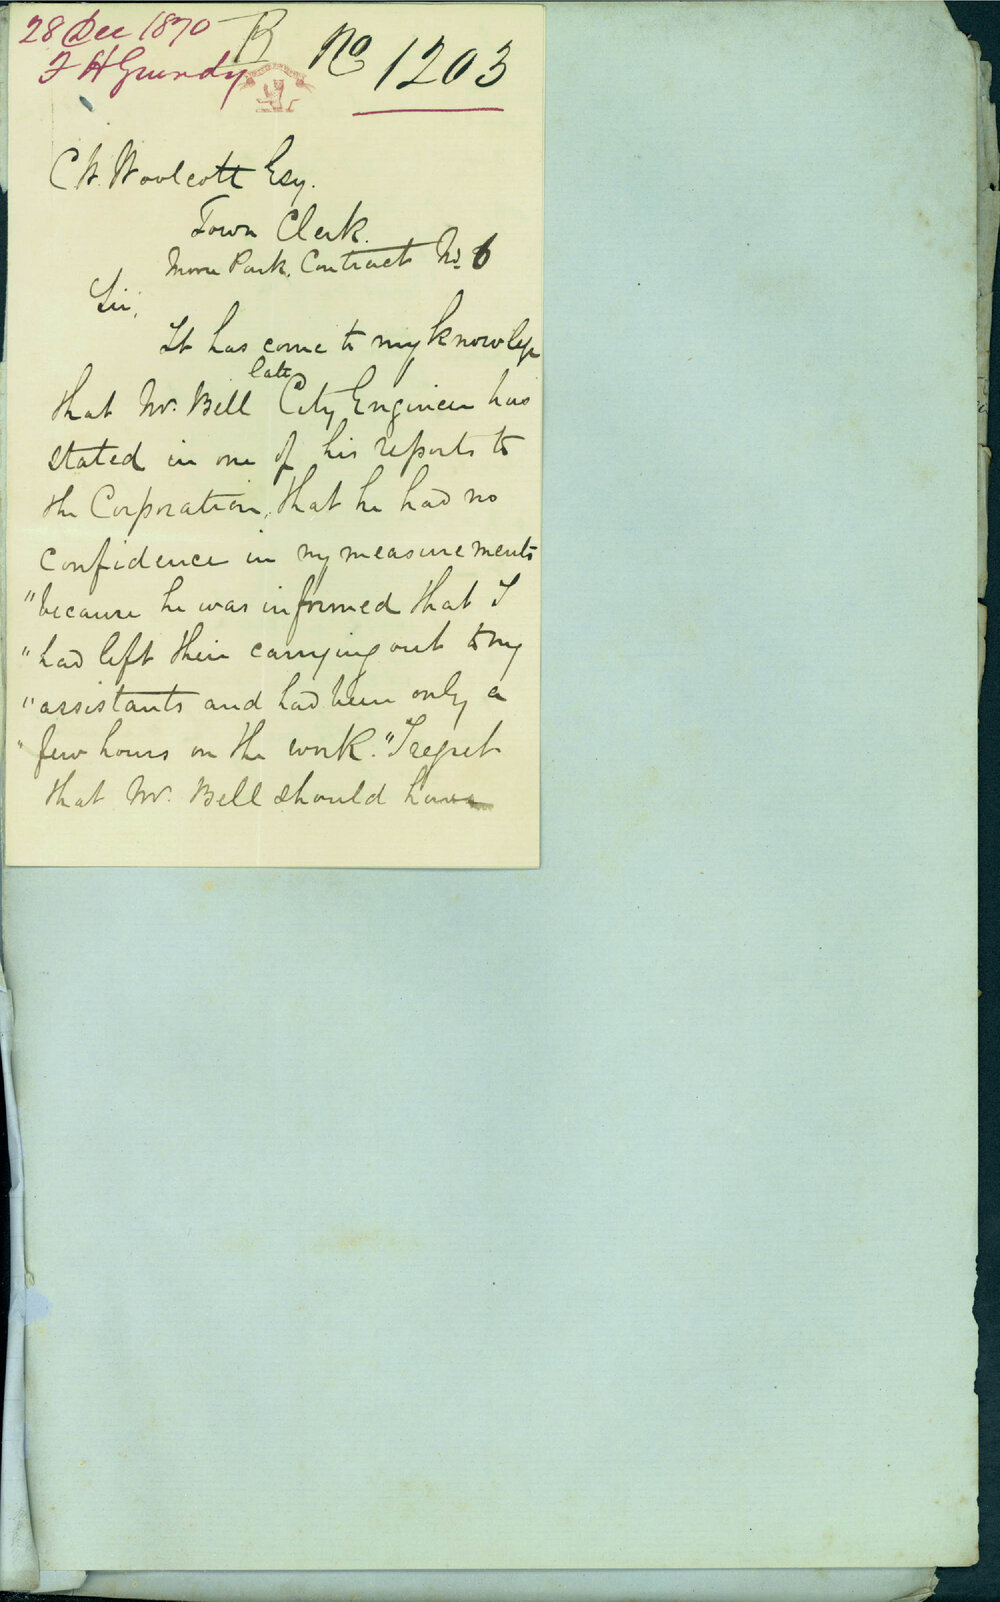 28 Dec 1870
F H Grundy
B No 1203
C H Woolcott Esq.
Town Clerk.
Moore Park. Contract No. 6
Sir,
It has come to my knowledge
late
that Mr. Bell City Engineer has
stated in one of his reports to
the Corporation, that he had no
confidence in my measurements
"because he was informed that I
"had left their carrying out to my
"assistants and had been only a
"few hours on the work." I regret
that Mr. Bell should have